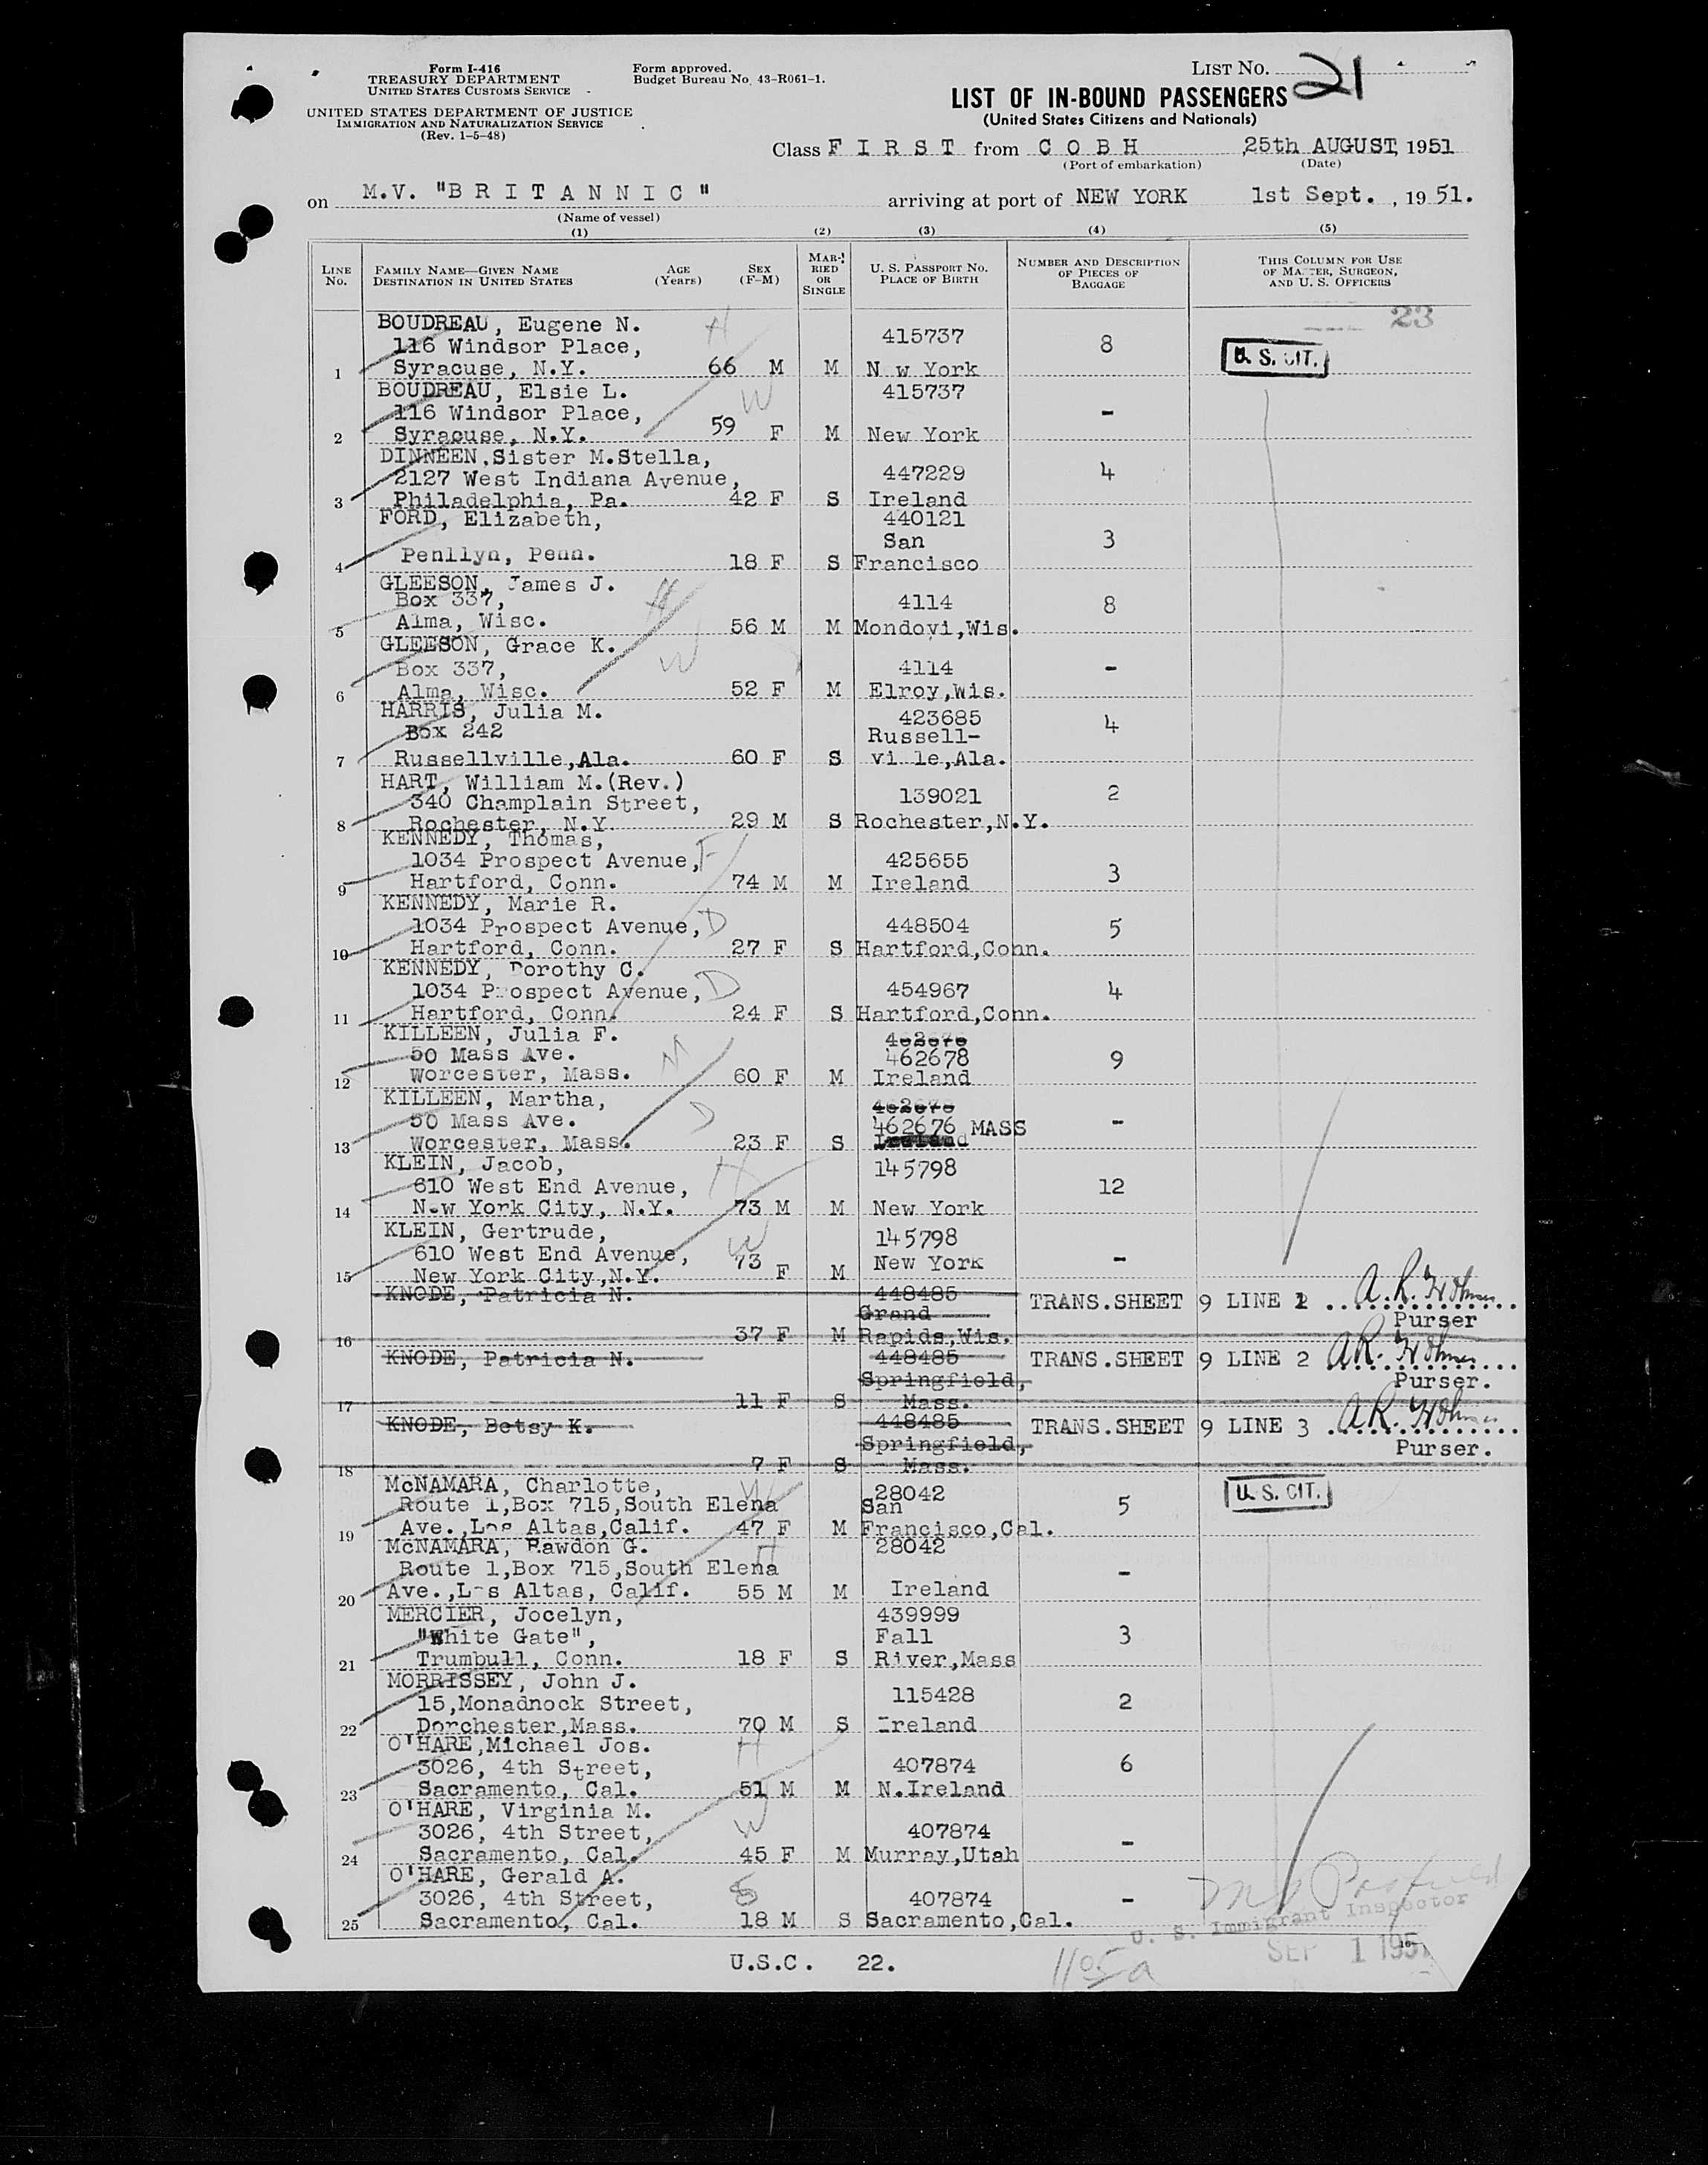 Form I-416
TREASURY DEPARTMENT
UNITED STATES CUSTOMS SERVICE
UNITED STATES DEPARTMENT OF JUSTICE
IMMIGRATION AND NATURALIZATION SERVICE
(Rev. 1-5-48)
Form approved.
Budget Bureau No. 43-R061-1.
LIST No. 21
LIST OF IN-BOUND PASSENGERS
(United States Citizens and Nationals)
Class F I R S T from C O B H 25th AUGUST, 1951
(Port of embarkation) (Date)
on M.V. "B R I T A N N I C" arriving at port of NEW YORK 1st Sept. , 19 51.
(Name of vessel)
(1) (2) (3) (4) (5)
LINE No. FAMILY NAME—GIVEN NAME DESTINATION IN UNITED STATES AGE (Years) SEX (F-M) MARRIED OR SINGLE U. S. PASSPORT No. PLACE OF BIRTH NUMBER AND DESCRIPTION OF PIECES OF BAGGAGE THIS COLUMN FOR USE OF MASTER, SURGEON, AND U. S. OFFICERS
23
BOUDREAU, Eugene N. H 415737
116 Windsor Place, 8 U. S. CIT.
1 Syracuse, N.Y. 66 M M N w York
BOUDREAU, Elsie L. W 415737
116 Windsor Place, -
2 Syracuse, N.Y. 59 F M New York
DINNEEN,Sister M.Stella, 447229 4
2127 West Indiana Avenue,
3 Philadelphia, Pa. 42 F S Ireland
FORD, Elizabeth, 440121
San 3
4 Penllyn, Penn. 18 F S Francisco
GLEESON, James J. H
Box 337, 4114 8
5 Alma, Wisc. 56 M M Mondovi,Wis.
GLEESON, Grace K. W
Box 337, 4114 -
6 Alma, Wisc. 52 F M Elroy,Wis.
HARRIS, Julia M. 423685 4
Box 242 Russell-
7 Russellville,Ala. 60 F S vi le,Ala.
HART, William M.(Rev.) 139021 2
340 Champlain Street,
8 Rochester, N.Y. 29 M S Rochester,N.Y.
KENNEDY, Thomas, F
1034 Prospect Avenue, 425655 3
9 Hartford, Conn. 74 M M Ireland
KENNEDY, Marie R.
1034 Prospect Avenue, D 448504 5
10 Hartford, Conn. 27 F S Hartford,Conn.
KENNEDY, Dorothy C.
1034 P ospect Avenue, D 454967 4
11 Hartford, Conn. 24 F S Hartford,Conn.
KILLEEN, Julia F.
50 Mass Ave. M 462678 9
12 Worcester, Mass. 60 F M Ireland
KILLEEN, Martha,
50 Mass Ave. D 462676 MASS -
13 Worcester, Mass. 23 F S Ireland
KLEIN, Jacob, H 145798
610 West End Avenue, 12
14 New York City, N.Y. 73 M M New York
KLEIN, Gertrude, W 145798
610 West End Avenue, New York -
15 New York City,N.Y. 73 F M
KNODE, Patricia N. 448485 TRANS.SHEET 9 LINE 1
Grand Purser
16 37 F M Rapids,Wis.
KNODE, Patricia N. 448485 TRANS.SHEET 9 LINE 2
Springfield, Purser.
17 11 F S Mass.
KNODE, Betsy K. 448485 TRANS.SHEET 9 LINE 3
Springfield, Purser.
18 7 F S Mass.
McNAMARA, Charlotte, W 28042 U. S. CIT.
Route 1,Box 715,South Elena San 5
19 Ave.,Los Altas,Calif. 47 F M Francisco,Cal.
McNAMARA, Rawdon G. H 28042
Route 1,Box 715,South Elena -
20 Ave.,L s Altas, Calif. 55 M M Ireland
MERCIER, Jocelyn, 439999
"White Gate", Fall 3
21 Trumbull, Conn. 18 F S River,Mass
MORRISSEY, John J. 115428
15,Monadnock Street, 2
22 Dorchester,Mass. 70 M S Ireland
O'HARE,Michael Jos. H
3026, 4th Street, 407874 6
23 Sacramento, Cal. 51 M M N.Ireland
O'HARE, Virginia M. W
3026, 4th Street, 407874 -
24 Sacramento, Cal. 45 F M Murray,Utah
O'HARE, Gerald A. S
3026, 4th Street, 407874 -
25 Sacramento, Cal. 18 M S Sacramento,Cal.
U. S. Immigrant Inspector
SEP 1 195
U.S.C. 22.